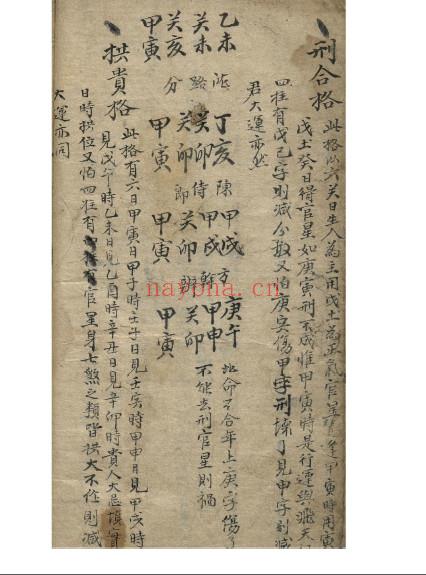 刑合格
此格以六癸日生人為主用戊土為正氣官星喜逢甲寅時用寅
戊土癸日得官星如庚寅刑不成惟甲寅時是行運與飛天
四柱有戊己字則減分數又怕庚寅傷甲字刑壞了見申字則減
君大運亦然
庚午 甲申 癸卯 甲寅
此命不合年上庚字傷了
不能去刑官星則禍
甲戌 甲戌 癸卯 甲寅
方 幹 辦
丁亥 癸卯 癸卯 甲寅
陳 侍 郎
乙未 癸未 癸亥 甲寅
沈 路 分
拱貴格
此格有六日甲寅日甲子時壬子日見壬寅時甲申日見甲戌時
見戊午時乙未日見乙酉時辛丑日見辛卯時貴人大忌填實
日時拱位又怕四柱有官星身七煞之類皆拱大不住則減
大運亦同
nayona.cn